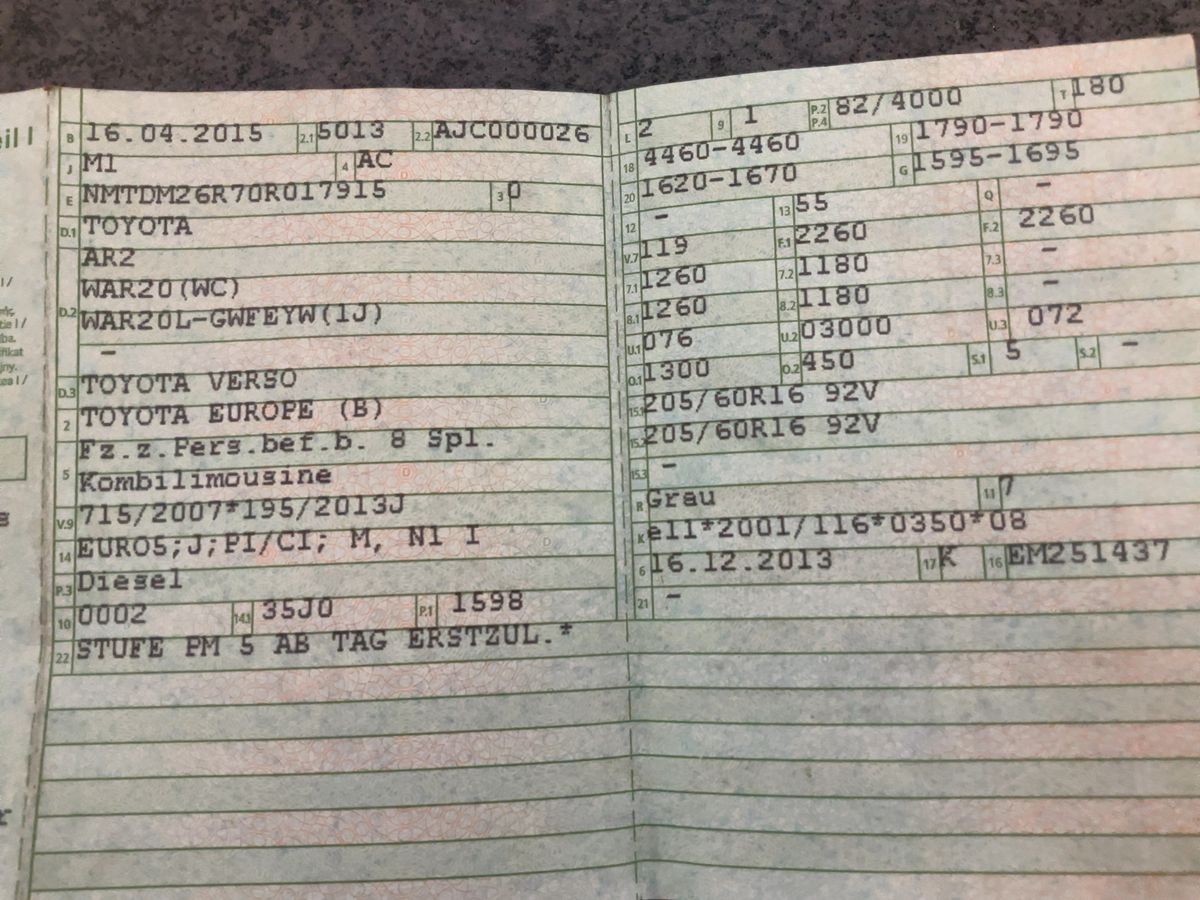 eil I
B 16.04.2015 2.1 5013 2.2 AJC000026
J M1 4 AC
E NMTDM26R70R017915 3 0
D.1 TOYOTA
AR2
WAR20(WC)
D.2 WAR20L-GWFEYW(1J)
-
D.3 TOYOTA VERSO
2 TOYOTA EUROPE (B)
Fz.z.Pers.bef.b. 8 Spl.
5 Kombilimousine
V.9 715/2007*195/2013J
14 EURO5;J;PI/CI; M, N1 I
P.3 Diesel
10 0002 14.1 35J0 P.1 1598
22 STUFE PM 5 AB TAG ERSTZUL.*
L 2 9 1 P.2 P.4 82/4000 T 180
18 4460-4460 19 1790-1790
20 1620-1670 G 1595-1695
12 - 13 55 Q -
V.7 119 F.1 2260 F.2 2260
7.1 1260 7.2 1180 7.3 -
8.1 1260 8.2 1180 8.3 -
U.1 076 U.2 03000 U.3 072
O.1 1300 O.2 450 S.1 5 S.2 -
15.1 205/60R16 92V
15.2 205/60R16 92V
15.3 -
R Grau 11 7
K e11*2001/116*0350*08
6 16.12.2013 17 K 16 EM251437
21 -